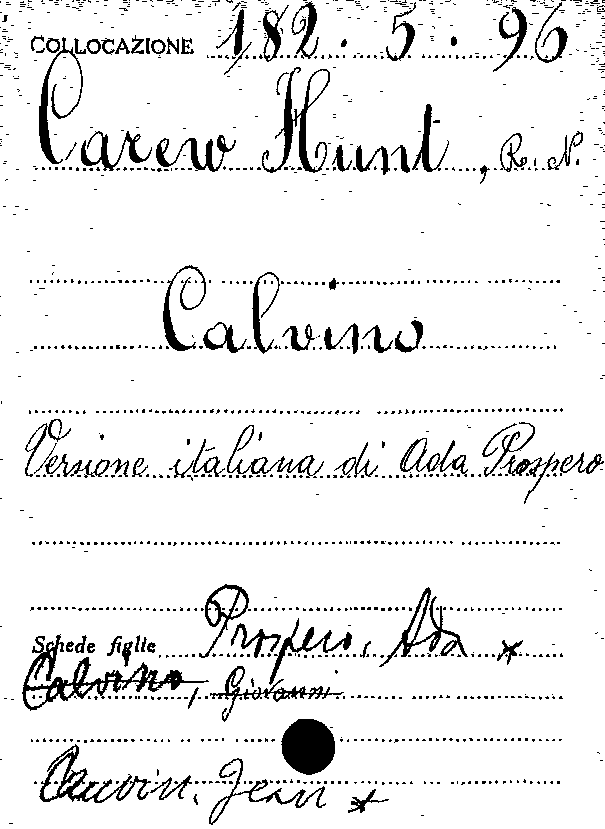 COLLOCAZIONE 182. 5. 96
Carew Hunt, R. N.
Calvino
Versione italiana di Ada Prospero
Schede figlie Prospero, Ada *
Calvino, Giovanni
Cauvin, Jean *